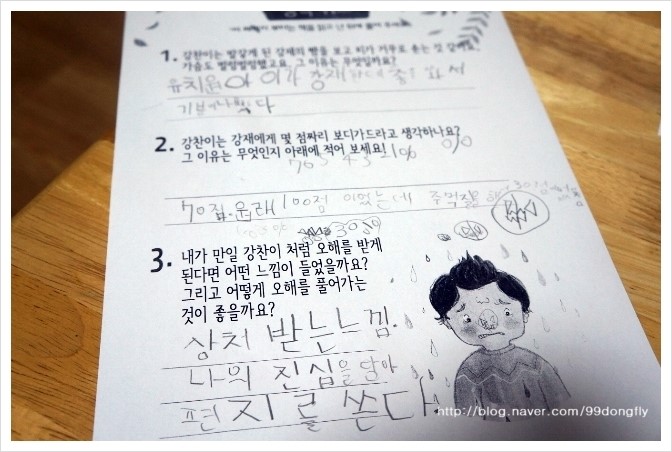 1. 강찬이는 빨갛게 된 강재의 뺨을 보고 피가 거꾸로 솟는 것 같
가슴도 벌렁벌렁했고요. 그 이유는 무엇일까요?
유치원 이가 강재
기분 나쁘다
2. 강찬이는 강재에게 몇 점짜리 보디가드라고 생각하나요?
그 이유는 무엇인지 아래에 적어 보세요!
70점. 원래 100점 이었는데 주먹질을 30점
3. 내가 만일 강찬이 처럼 오해를 받게
된다면 어떤 느낌이 들었을까요?
그리고 어떻게 오해를 풀어가는
것이 좋을까요?
상처 받는 느낌.
나의 진심을 담아
편지를 쓴다
http://blog.naver.com/99dongfly